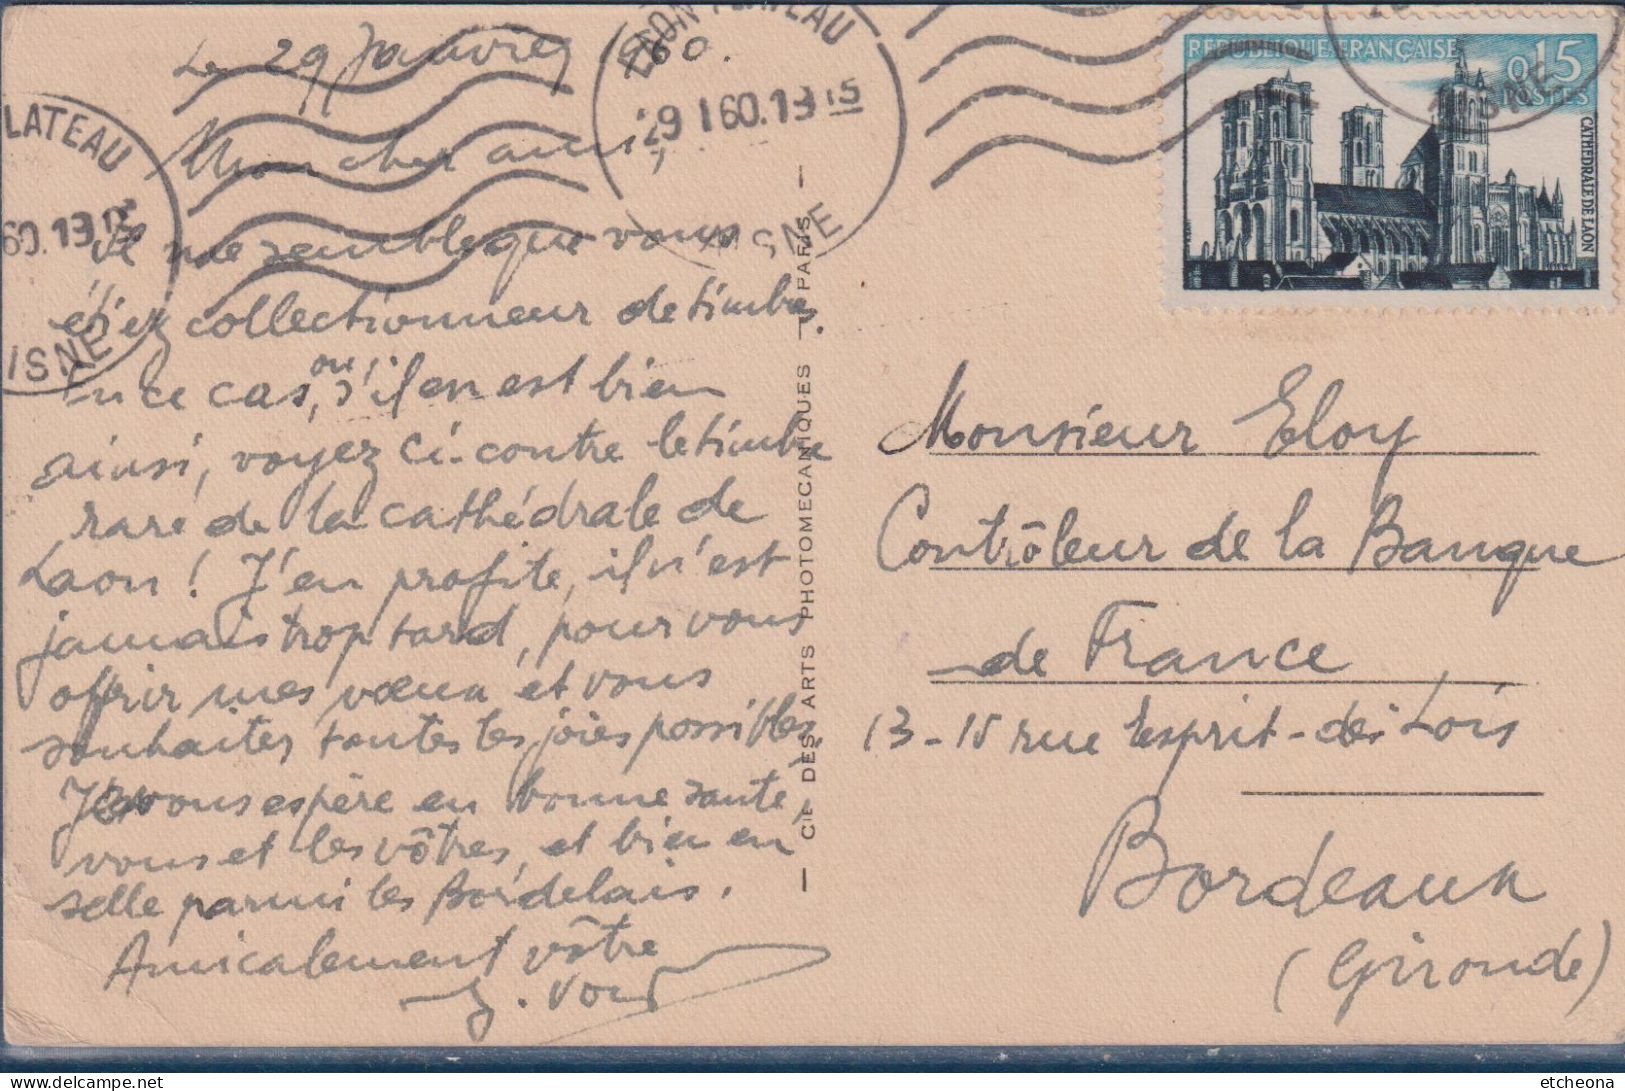 Le 29 Janvier 1960.
Mon cher ami,
Il me semble que vous
étiez collectionneur de timbres.
En ce cas, ou s'il en est bien
ainsi, voyez ci-contre le timbre
rare de la cathédrale de
Laon ! J'en profite, il n'est
jamais trop tard, pour vous
offrir mes vœux et vous
souhaiter toutes les joies possibles
Je vous espère en bonne santé,
vous et les vôtres, et bien en
selle parmi les Bordelais.
Amicalement vôtre
LATEAU
60. 13 15
AISNE
LAON PLATEAU
29 1 60. 13 15
AISNE
— CIE DES ARTS PHOTOMECANIQUES — PARIS —
REPUBLIQUE FRANÇAISE
0,15
POSTES
CATHEDRALE DE LAON
AISNE
Monsieur Eloy
Contrôleur de la Banque
de France
13-15 rue Esprit-des-Lois
Bordeaux
(Gironde)
etcheona